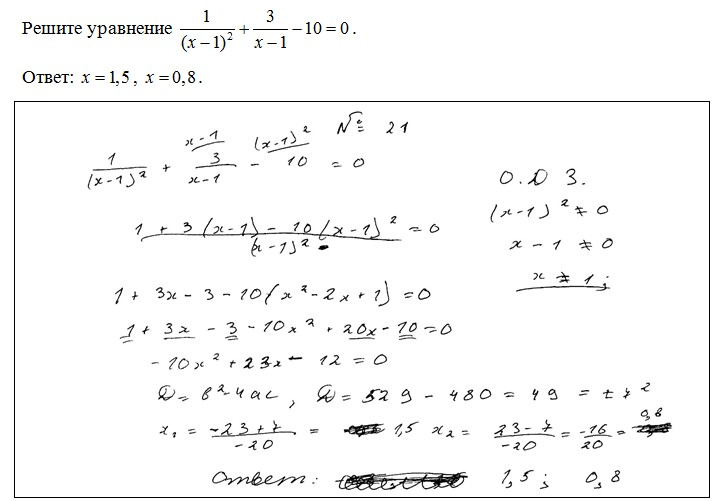 Решите уравнение 1/(x−1)² + 3/(x−1) − 10 = 0.
Ответ: x = 1,5, x = 0,8.
№ 21
1/(x-1)² + 3/(x-1) (x-1 - 10 (x-1)² = 0
О.Д З.
(x-1)² ≠ 0
(1 + 3(x-1) - 10(x-1)²)/(x-1)² = 0
x - 1 ≠ 0
x ≠ 1;
1 + 3x - 3 - 10(x² - 2x + 1) = 0
1 + 3x - 3 - 10x² + 20x - 10 = 0
-10x² + 23x - 12 = 0
D = b² - 4ac, D = 529 - 480 = 49 = ±7²
x₁ = (-23+7)/(-20) = 1,5 x₂ = (23-7)/(-20) = -16/20 = 0,8
Ответ: 1,5; 0,8